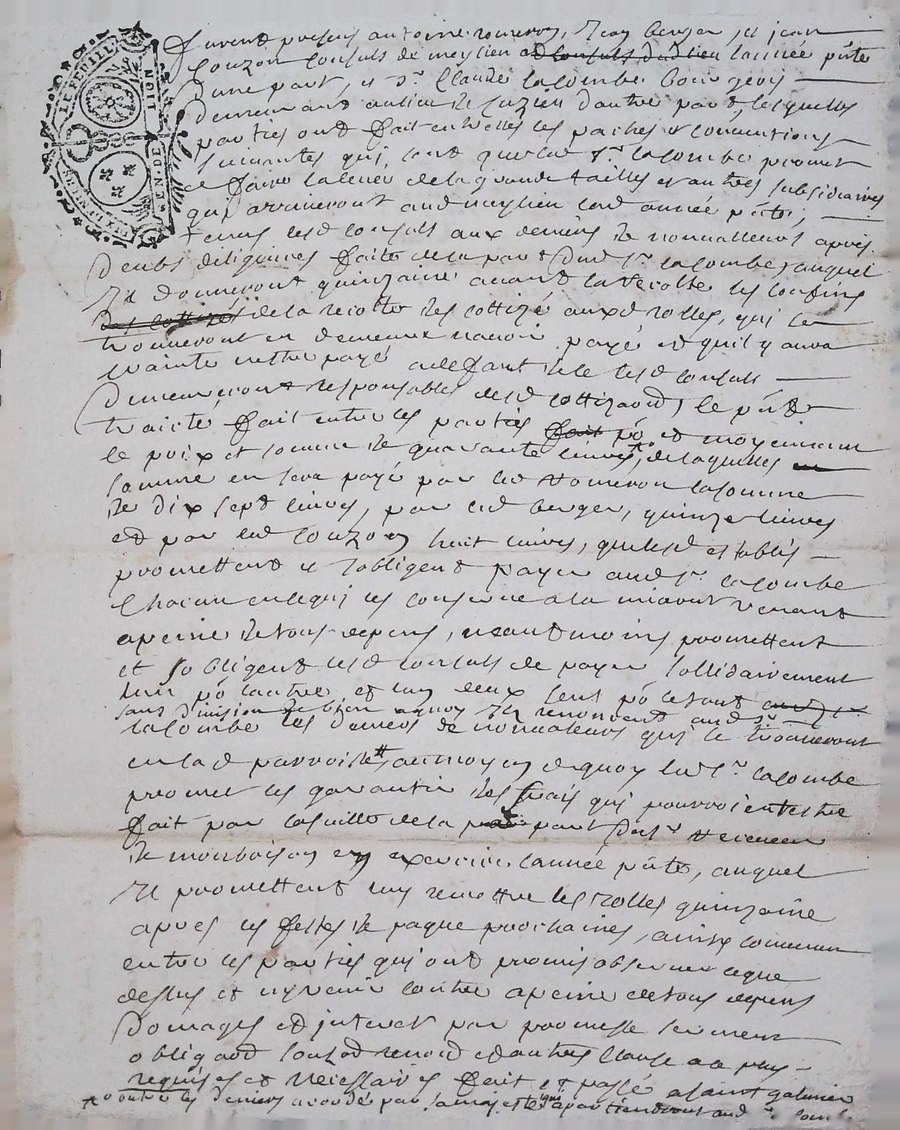 LE FEUILLE
GEN. DE LION
furent presens antoine romeron, Jean berger, et jean
Couzon Consuls de meylieu l'année pnte
dune part, et Sr. Claude lacombe bourgeois
demeurant au lieu de Cuzieu dautre part, lesquelles
parties ont fait entrelles les paches & conventions
suivantes qui sont que led Sr. lacombe promet
de faire la levée de la grande taille et autres subsidiaires
qui arriveront aud meylieu lad année pnte,
tenus lesd Consuls aux deniers de nonvalleurs apres
deubs diligences faite de la part dud Sr. lacombe, auquel
Ils donneront quinzaine avant la recolte les confins
de la recolte des cottizé auxd rolles, qui se
trouveront en demeure navoir payé et quil y aura
crainte nestre payé a deffaut de ce lesd Consuls
demeureront responsables desd cottizaons, le pnt
traicté fait entre les parties et moyennant
le prix et somme de quarante livres, de laquelles
somme en sera payé par led romeron la somme
de dix sept livres, par led berger, quinze livres
et par led Couzon huit livres, que lesd establis
promettent et sobligent payer aud Sr. lacombe
Chacun en ce qui les concerne a la miaout venant
apeine de tous depens, neantmoins promettent
et sobligent lesd Consuls de payer sollidairement
lun po lautre et un deux seul po le tout
sans division de bien a quoy Ils renoncent aud Sr.
lacombe les deniers de nonvaleurs qui se trouveront
en lad parroisse au moyen de quoy led Sr. lacombe
promet les garantir des frais qui pourroient estre
fait par la suitte de la part du Sr receveur
de monbrison en exercice lannée pnte, auquel
Il promettent luy remettre les rolles quinzaine
apres les festes de paque prochaines, ainsy convenu
entre les parties qui ont promis observer ce que
dessus et ny venir contre apeine de tous depens
domages et interet par promesse serment
obligaon renon et autres clause a ce plus
requises et necessaires fait et passé a saint galmier